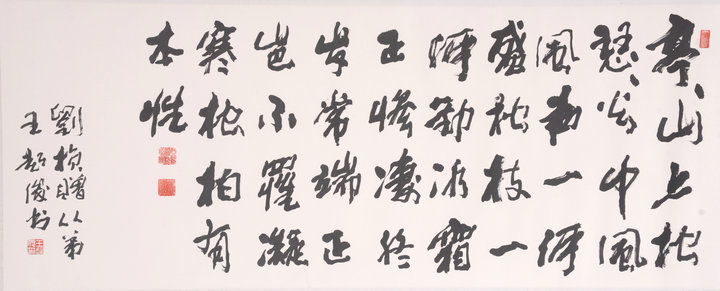 亭〻山上松
瑟〻谷中風
風聲一何
盛松枝一
何勁冰霜
正慘凄終
歲常端正
豈不罹凝
寒松柏有
本性
劉楨贈从弟
王俊书